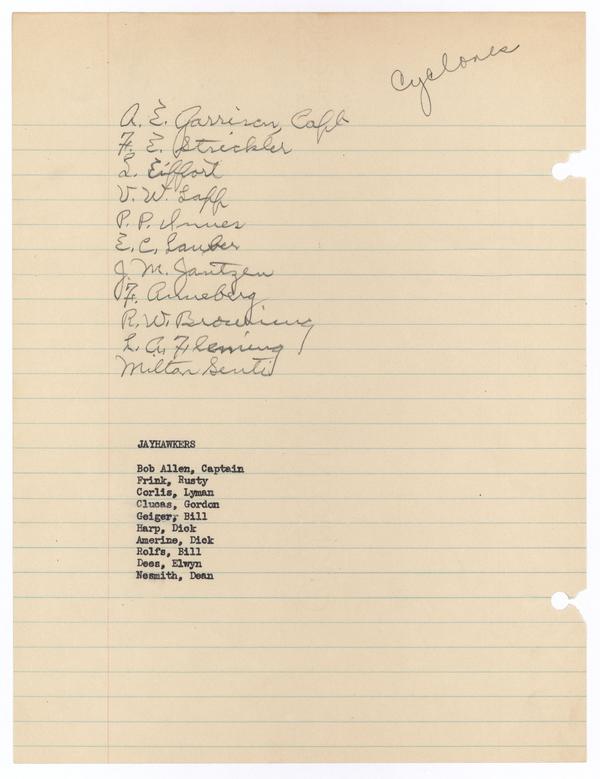 Cyclones
A. E. Garrison, Capt
F. E. Strickler
L. Eiffort
V. W. Lapp
P. P. Innes
E. C. Lauber
J. M. Jantzen
F. Anneberg
R. W. Browning
L. A. Fleming
Milton Senti
JAYHAWKERS
Bob Allen, Captain
Frink, Rusty
Corlis, Lyman
Clucas, Gordon
Geiger, Bill
Harp, Dick
Amerine, Dick
Rolfs, Bill
Dees, Elwyn
Nesmith, Dean